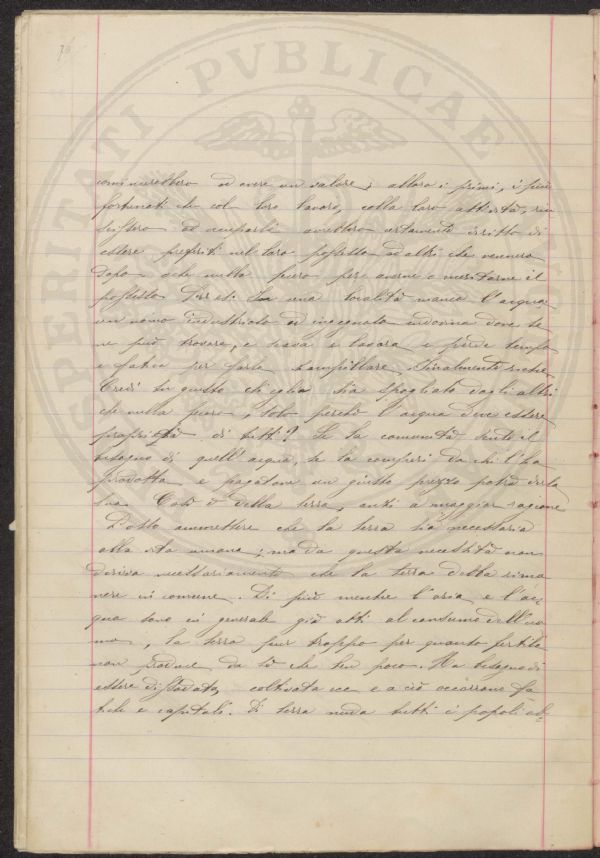 70
PROSPERITATI PVBLICAE
cominciarebbero ad avere un valore; allora i primi, i più
fortunati che col loro lavoro, colla loro attività, riu
scissero ad occuparli avrebbero certamente diritto di
essere preferiti nel loro possesso ad altri che vennero
dopo e che nulla fecero per averne e meritarne il
possesso. In una località manca l'acqua
un uomo industrioso ed ingegnoso indovina dove se
ne può trovare, e scava e lavora e perde tempo
e fatica per farla zampillare, finalmente riesce.
Credi tu giusto ch'egli sia spogliato dagli altri
che nulla fecero, solo perchè l'acqua deve essere
proprietà di tutti? Se la comunità sente il
bisogno di quell'acqua, se la comperi da chi l'ha
prodotta, e pagatone un giusto prezzo potrà dirla
sua. Così è della terra, anzi a maggior ragione
Posso ammettere che la terra sia necessaria
alla vita umana; ma da questa necessità non
deriva necessariamente che la terra debba rima
nere in comune. Di più mentre l'aria e l'ac
qua sono in generale già atti al consumo dell'uo
mo, la terra pur troppo per quanto fertile
non produce da sè che ben poco. Ha bisogno di
essere dissodata, coltivata ecc e a ciò occorrono fa
tiche e capitali. Di terra nuda tutti i popoli ab=